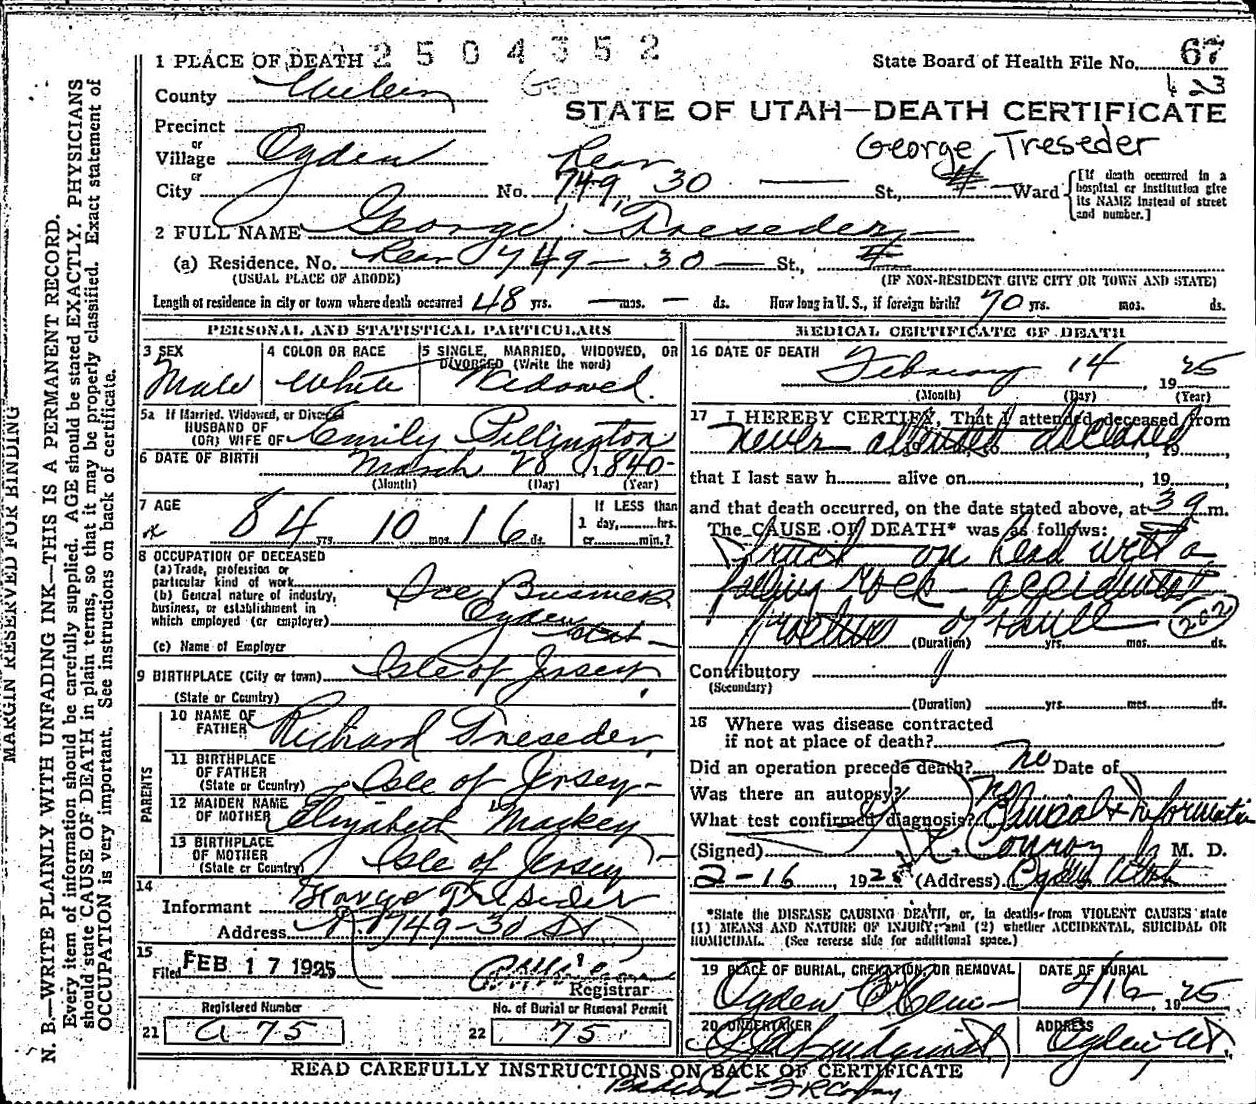 1 PLACE OF DEATH 2504352
State Board of Health File No. 67
County
123
Geo
STATE OF UTAH—DEATH CERTIFICATE
Precinct
or
George Treseder
Village Ogden
or
Rear
City No. 749, 30 — St., 4 Ward
[If death occurred in a hospital or institution give its NAME instead of street and number.]
2 FULL NAME George Treseder
(a) Residence, No. Rear 749—30— St., 4
(USUAL PLACE OF ABODE) (IF NON-RESIDENT GIVE CITY OR TOWN AND STATE)
Length of residence in city or town where death occurred 48 yrs. — mos. — ds. How long in U. S., if foreign birth? 70 yrs. mos. ds.
PERSONAL AND STATISTICAL PARTICULARS
3 SEX
Male
4 COLOR OR RACE
White
5 SINGLE, MARRIED, WIDOWED, OR
DIVORCED (Write the word)
Widowed.
5a If Married, Widowed, or Divorced
HUSBAND OF
(OR) WIFE OF Emily Pillington
6 DATE OF BIRTH March 28, 1840-
(Month) (Day) (Year)
7 AGE
84 yrs. 10 mos. 16 ds.
If LESS than
1 day, hrs.
or min.?
8 OCCUPATION OF DECEASED
(a) Trade, profession or
particular kind of work Ice Business
(b) General nature of industry,
business, or establishment in
which employed (or employer) Ogden
(c) Name of Employer
9 BIRTHPLACE (City or town) Isle of Jersey
(State or Country)
PARENTS
10 NAME OF
FATHER Richard Treseder
11 BIRTHPLACE
OF FATHER
(State or Country) Isle of Jersey-
12 MAIDEN NAME
OF MOTHER Elizabeth Mackey
13 BIRTHPLACE
OF MOTHER
(State or Country) Isle of Jersey-
14
Informant George Treseder
Address R 749-30 St
15
Filed FEB 17 1925
Registrar
Registered Number
21 a-75
No. of Burial or Removal Permit
22 75
MEDICAL CERTIFICATE OF DEATH
16 DATE OF DEATH February 14, 1925
(Month) (Day) (Year)
17 I HEREBY CERTIFY, That I attended deceased from
never attended deceased, 19
that I last saw h alive on , 19
and that death occurred, on the date stated above, at 3 m.
The CAUSE OF DEATH* was as follows:
Struck on head with a
falling rock - accident
fracture of skull (202)
(Duration) yrs. mos. ds.
Contributory
(Secondary)
(Duration) yrs. mos. ds.
18 Where was disease contracted
if not at place of death?
Did an operation precede death? no Date of
Was there an autopsy? no
What test confirmed diagnosis? Clinical & Information
(Signed) Conroy Jr M. D.
2-16, 1925 (Address) Ogden Utah
*State the DISEASE CAUSING DEATH, or, in deaths from VIOLENT CAUSES state
(1) MEANS AND NATURE OF INJURY; and (2) whether ACCIDENTAL, SUICIDAL OR
HOMICIDAL. (See reverse side for additional space.)
19 PLACE OF BURIAL, CREMATION, OR REMOVAL
Ogden C Cem-
DATE OF BURIAL
2/16, 1925
20 UNDERTAKER
Lindquist
ADDRESS
Ogden, Ut,
READ CAREFULLY INSTRUCTIONS ON BACK OF CERTIFICATE
MARGIN RESERVED FOR BINDING
N. B.—WRITE PLAINLY WITH UNFADING INK—THIS IS A PERMANENT RECORD.
Every item of information should be carefully supplied. AGE should be stated EXACTLY. PHYSICIANS
should state CAUSE OF DEATH in plain terms, so that it may be properly classified. Exact statement of
OCCUPATION is very important. See instructions on back of certificate.